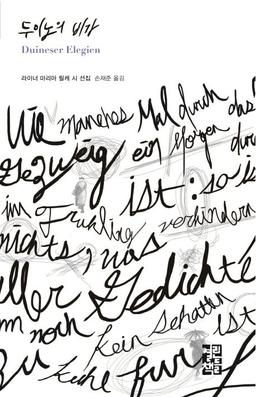 두이노의 비가
Duineser Elegien
라이너 마리아 릴케 시 선집 손재준 옮김
Wie manches Mal durch das
Gezweig ein Morgen durch
ist: so is
im Frühling verhindern
nichts, was
aller Gedichte
im noch kein Schatten ist
zu kühe für
열린책들